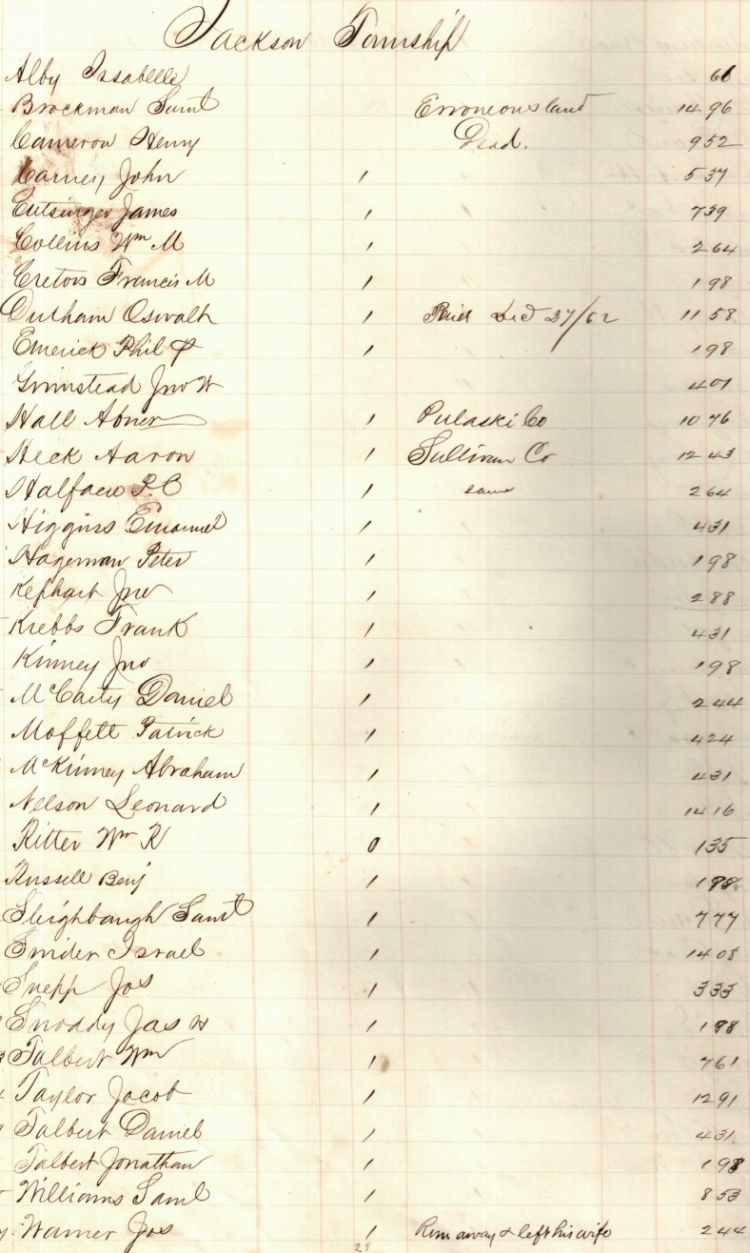 Jackson Township
Alby Issabelle 66
Brockman Saml Erroneous land 14 96
Cameron Henry Dead. 9 52
Carney John 1 5 37
Cutsinger James 1 7 39
Collins Wm M 1 2 64
Cretors Francis M 1 1 98
Durham Oswalt 1 Paid Dec 27/62 11 58
Emerick Phil P 1 1 98
Grimstead Jno W 4 01
Hall Abner 1 Pulaski Co 10 76
Heck Aaron 1 Sullivan Co 12 43
Halfacre P. C 1 same 2 64
Higgins Emanuel 1 4 31
Hageman Peter 1 1 98
Kephart Jno 1 2 88
Krebbs Frank 1 4 31
Kinney Jno 1 1 98
McCarty Daniel 1 2 44
Moffett Patrick 1 4 24
McKinney Abraham 1 4 31
Nelson Leonard 1 14 16
Ritter Wm R 0 1 35
Russell Benj 1 1 98
Sleighbaugh Saml 1 7 77
Snider Israel 1 14 08
Snepp Jos 1 3 33
Snoddy Jas H 1 1 98
Talbert Wm 1 7 61
Taylor Jacob 1 12 91
Talbert Daniel 1 4 31
Talbert Jonathan 1 1 98
Williams Saml 1 8 53
Warner Jos 1 Run away & left his wife 2 44
28